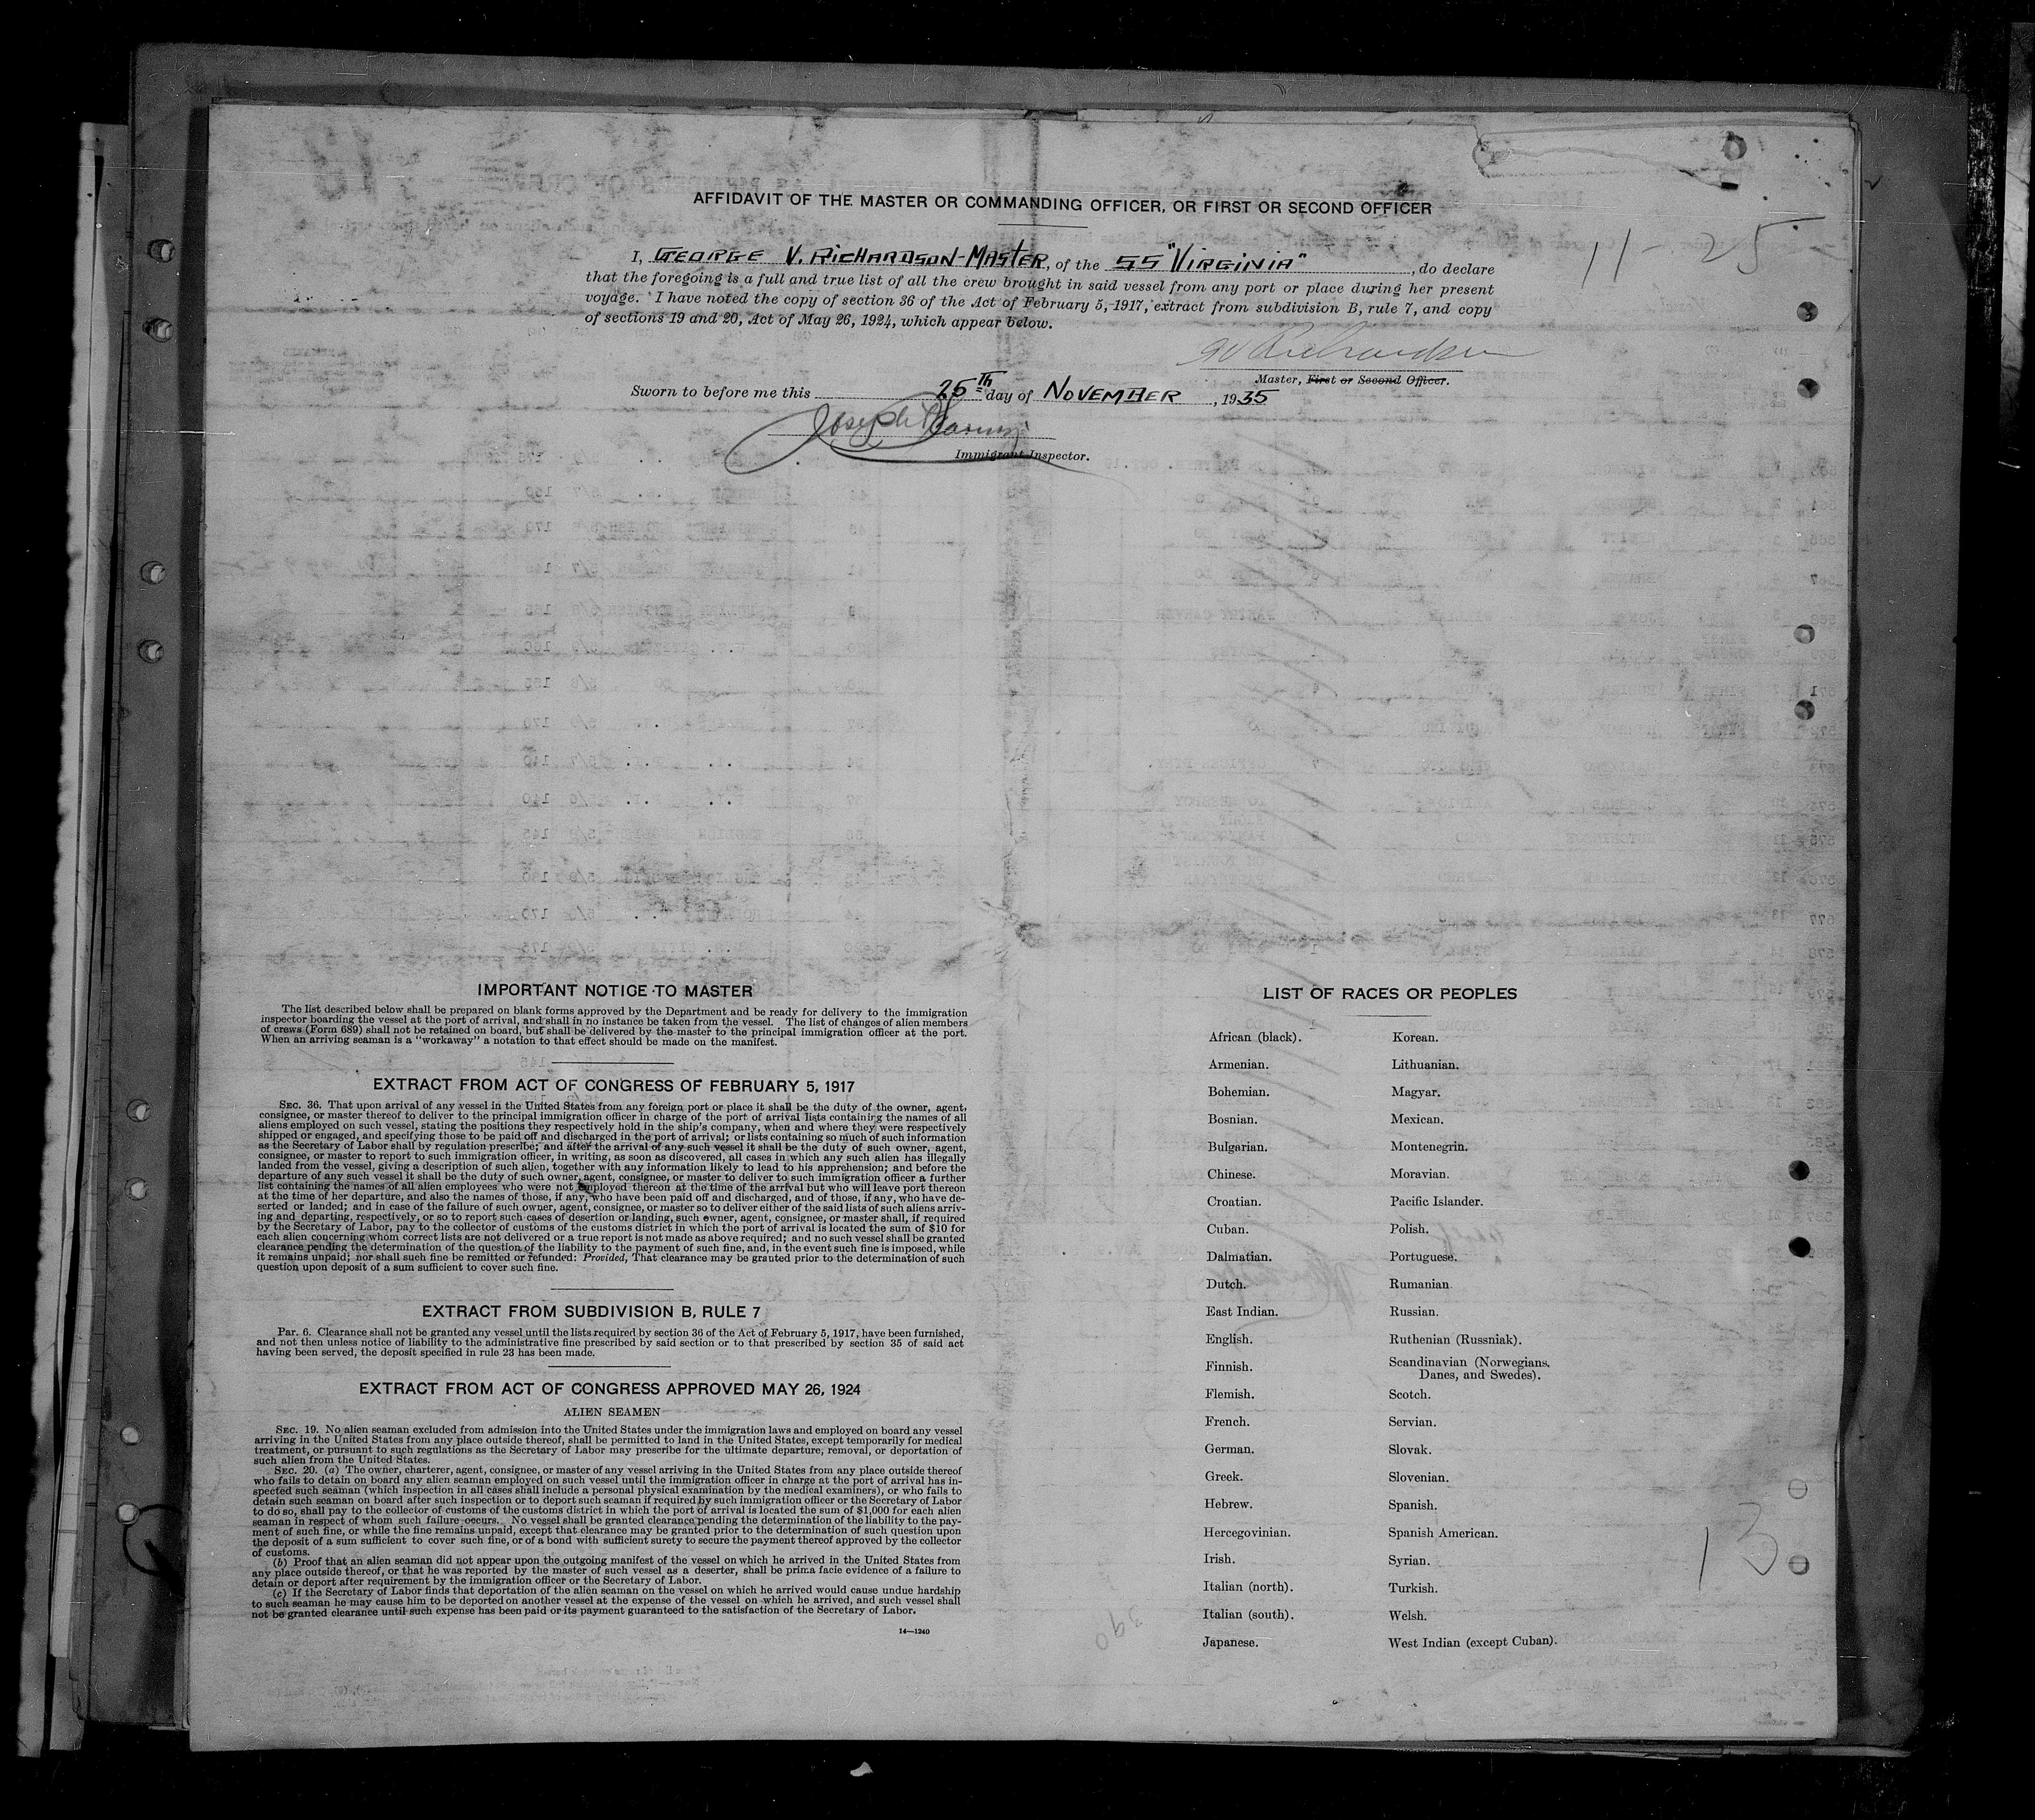 AFFIDAVIT OF THE MASTER OR COMMANDING OFFICER, OR FIRST OR SECOND OFFICER
11-25
I, GEORGE V. RICHARDSON-MASTER, of the SS "VIRGINIA", do declare
that the foregoing is a full and true list of all the crew brought in said vessel from any port or place during her present
voyage. I have noted the copy of section 36 of the Act of February 5, 1917, extract from subdivision B, rule 7, and copy
of sections 19 and 20, Act of May 26, 1924, which appear below.
GV Richardson
Master, First or Second Officer.
Sworn to before me this 25th day of NOVEMBER, 1935
Joseph
Immigrant Inspector.
IMPORTANT NOTICE TO MASTER
The list described below shall be prepared on blank forms approved by the Department and be ready for delivery to the immigration
inspector boarding the vessel at the port of arrival, and shall in no instance be taken from the vessel. The list of changes of alien members
of crews (Form 689) shall not be retained on board, but shall be delivered by the master to the principal immigration officer at the port.
When an arriving seaman is a "workaway" a notation to that effect should be made on the manifest.
EXTRACT FROM ACT OF CONGRESS OF FEBRUARY 5, 1917
SEC. 36. That upon arrival of any vessel in the United States from any foreign port or place it shall be the duty of the owner, agent,
consignee, or master thereof to deliver to the principal immigration officer in charge of the port of arrival lists containing the names of all
aliens employed on such vessel, stating the positions they respectively hold in the ship's company, when and where they were respectively
shipped or engaged, and specifying those to be paid off and discharged in the port of arrival; or lists containing so much of such information
as the Secretary of Labor shall by regulation prescribe; and after the arrival of any such vessel it shall be the duty of such owner, agent,
consignee, or master to report to such immigration officer, in writing, as soon as discovered, all cases in which any such alien has illegally
landed from the vessel, giving a description of such alien, together with any information likely to lead to his apprehension; and before the
departure of any such vessel it shall be the duty of such owner, agent, consignee, or master to deliver to such immigration officer a further
list containing the names of all alien employees who were not employed thereon at the time of the arrival but who will leave port thereon
at the time of her departure, and also the names of those, if any, who have been paid off and discharged, and of those, if any, who have de-
serted or landed; and in case of the failure of such owner, agent, consignee, or master so to deliver either of the said lists of such aliens arriv-
ing and departing, respectively, or so to report such cases of desertion or landing, such owner, agent, consignee, or master shall, if required
by the Secretary of Labor, pay to the collector of customs of the customs district in which the port of arrival is located the sum of $10 for
each alien concerning whom correct lists are not delivered or a true report is not made as above required; and no such vessel shall be granted
clearance pending the determination of the question of the liability to the payment of such fine, and, in the event such fine is imposed, while
it remains unpaid; nor shall such fine be remitted or refunded: Provided, That clearance may be granted prior to the determination of such
question upon deposit of a sum sufficient to cover such fine.
EXTRACT FROM SUBDIVISION B, RULE 7
PAR. 6. Clearance shall not be granted any vessel until the lists required by section 36 of the Act of February 5, 1917, have been furnished,
and not then unless notice of liability to the administrative fine prescribed by said section or to that prescribed by section 35 of said act
having been served, the deposit specified in rule 23 has been made.
EXTRACT FROM ACT OF CONGRESS APPROVED MAY 26, 1924
ALIEN SEAMEN
SEC. 19. No alien seaman excluded from admission into the United States under the immigration laws and employed on board any vessel
arriving in the United States from any place outside thereof, shall be permitted to land in the United States, except temporarily for medical
treatment, or pursuant to such regulations as the Secretary of Labor may prescribe for the ultimate departure, removal, or deportation of
such alien from the United States.
SEC. 20. (a) The owner, charterer, agent, consignee, or master of any vessel arriving in the United States from any place outside thereof
who fails to detain on board any alien seaman employed on such vessel until the immigration officer in charge at the port of arrival has in-
spected such seaman (which inspection in all cases shall include a personal physical examination by the medical examiners), or who fails to
detain such seaman on board after such inspection or to deport such seaman if required by such immigration officer or the Secretary of Labor
to do so, shall pay to the collector of customs of the customs district in which the port of arrival is located the sum of $1,000 for each alien
seaman in respect of whom such failure occurs. No vessel shall be granted clearance pending the determination of the liability to the pay-
ment of such fine, or while the fine remains unpaid, except that clearance may be granted prior to the determination of such question upon
the deposit of a sum sufficient to cover such fine, or of a bond with sufficient surety to secure the payment thereof approved by the collector
of customs.
(b) Proof that an alien seaman did not appear upon the outgoing manifest of the vessel on which he arrived in the United States from
any place outside thereof, or that he was reported by the master of such vessel as a deserter, shall be prima facie evidence of a failure to
detain or deport after requirement by the immigration officer or the Secretary of Labor.
(c) If the Secretary of Labor finds that deportation of the alien seaman on the vessel on which he arrived would cause undue hardship
to such seaman he may cause him to be deported on another vessel at the expense of the vessel on which he arrived, and such vessel shall
not be granted clearance until such expense has been paid or its payment guaranteed to the satisfaction of the Secretary of Labor.
14—1240
LIST OF RACES OR PEOPLES
African (black).
Armenian.
Bohemian.
Bosnian.
Bulgarian.
Chinese.
Croatian.
Cuban.
Dalmatian.
Dutch.
East Indian.
English.
Finnish.
Flemish.
French.
German.
Greek.
Hebrew.
Hercegovinian.
Irish.
Italian (north).
Italian (south).
Japanese.
Korean.
Lithuanian.
Magyar.
Mexican.
Montenegrin.
Moravian.
Pacific Islander.
Polish.
Portuguese.
Rumanian.
Russian.
Ruthenian (Russniak).
Scandinavian (Norwegians,
Danes, and Swedes).
Scotch.
Servian.
Slovak.
Slovenian.
Spanish.
Spanish American.
Syrian.
Turkish.
Welsh.
West Indian (except Cuban).
13
390